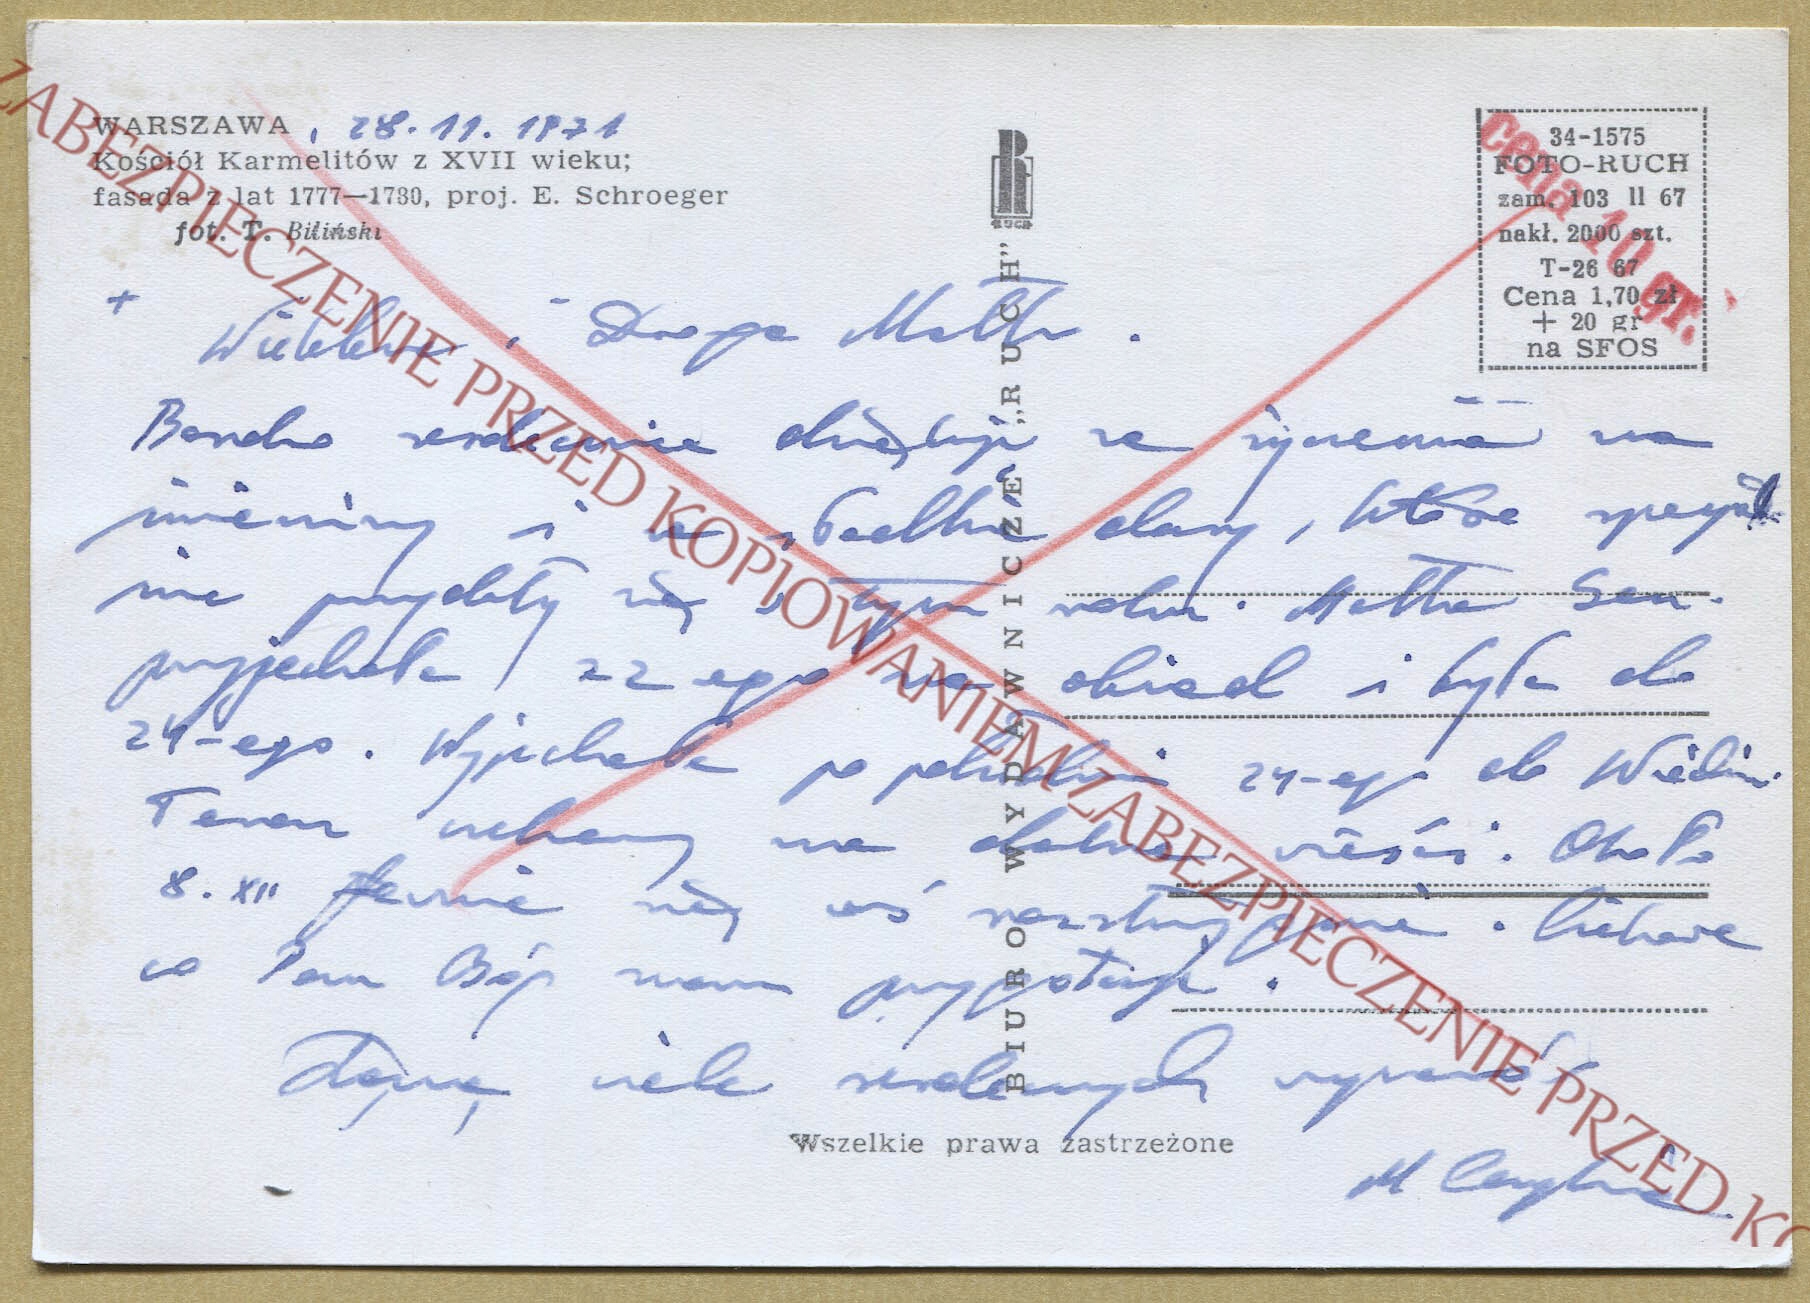 WARSZAWA, 28.11.1971
Kościół Karmelitów z XVII wieku;
fasada z lat 1777—1780, proj. E. Schroeger
fot. T. Biliński
RUCH
BIURO WYDAWNICZE „RUCH”
34-1575
FOTO-RUCH
zam. 103 II 67
nakł. 2000 szt.
T-26 67
Cena 1,70 zł
+ 20 gr
na SFOS
cena 10 gr.
+
i Droga Matko.
Bardzo serdecznie dziękuję za życzenia na
imieniny i za słodkie dary, które specjal-
nie przydały się w tym roku. Matka Gen.
przyjechała 22 ego na obiad i była do
24-ego. Wyjechała po południu 24-ego do Wiednia.
Teraz czekamy na dalsze wieści. Około
8.XII pewnie się coś rozstrzygnie. Ciekawe
co Pan Bóg nam przygotuje.
Łączę wiele serdecznych wyrazów
M
Wszelkie prawa zastrzeżone
ZABEZPIECZENIE PRZED KOPIOWANIEM ZABEZPIECZENIE PRZED KO